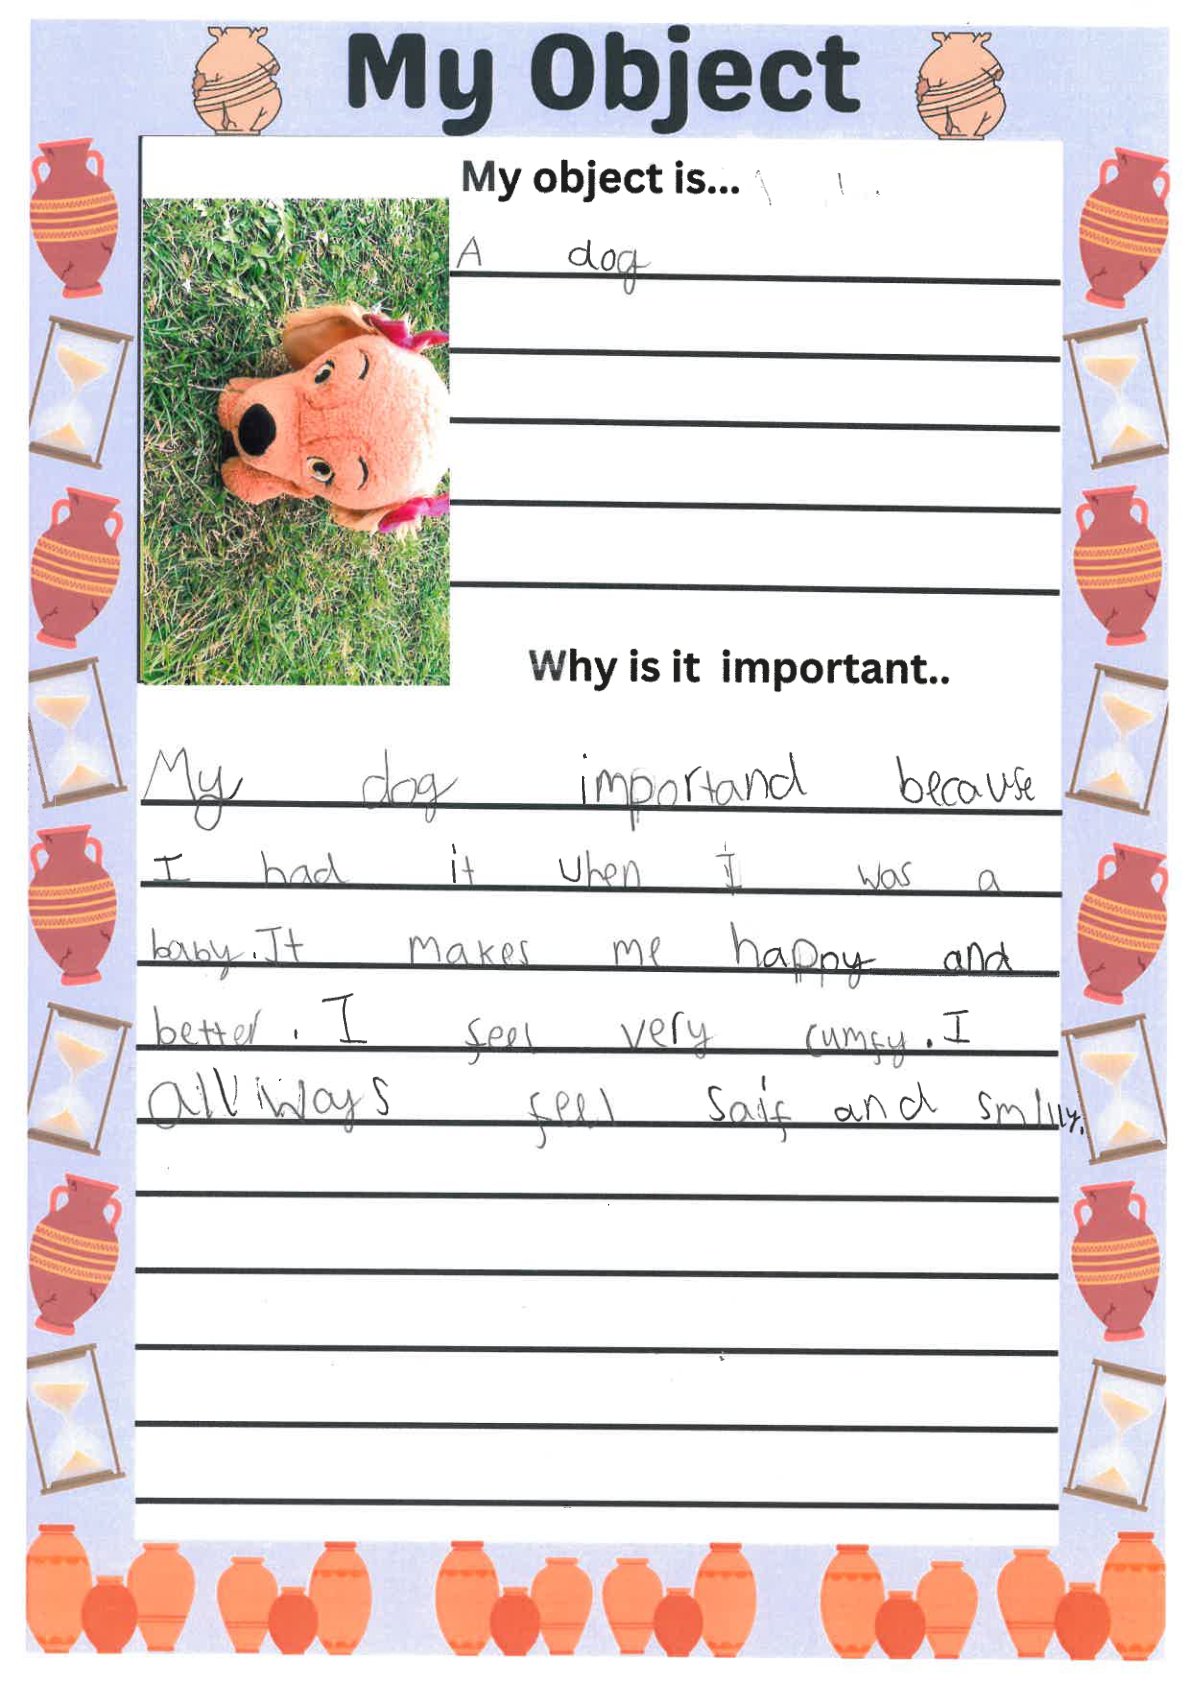 My Object
My object is...
A dog
Why is it important..
My dog importand because
I had it uhen I was a
baby. It makes me happy and
better. I feel very cumfy. I
allways feel saif and smilly.